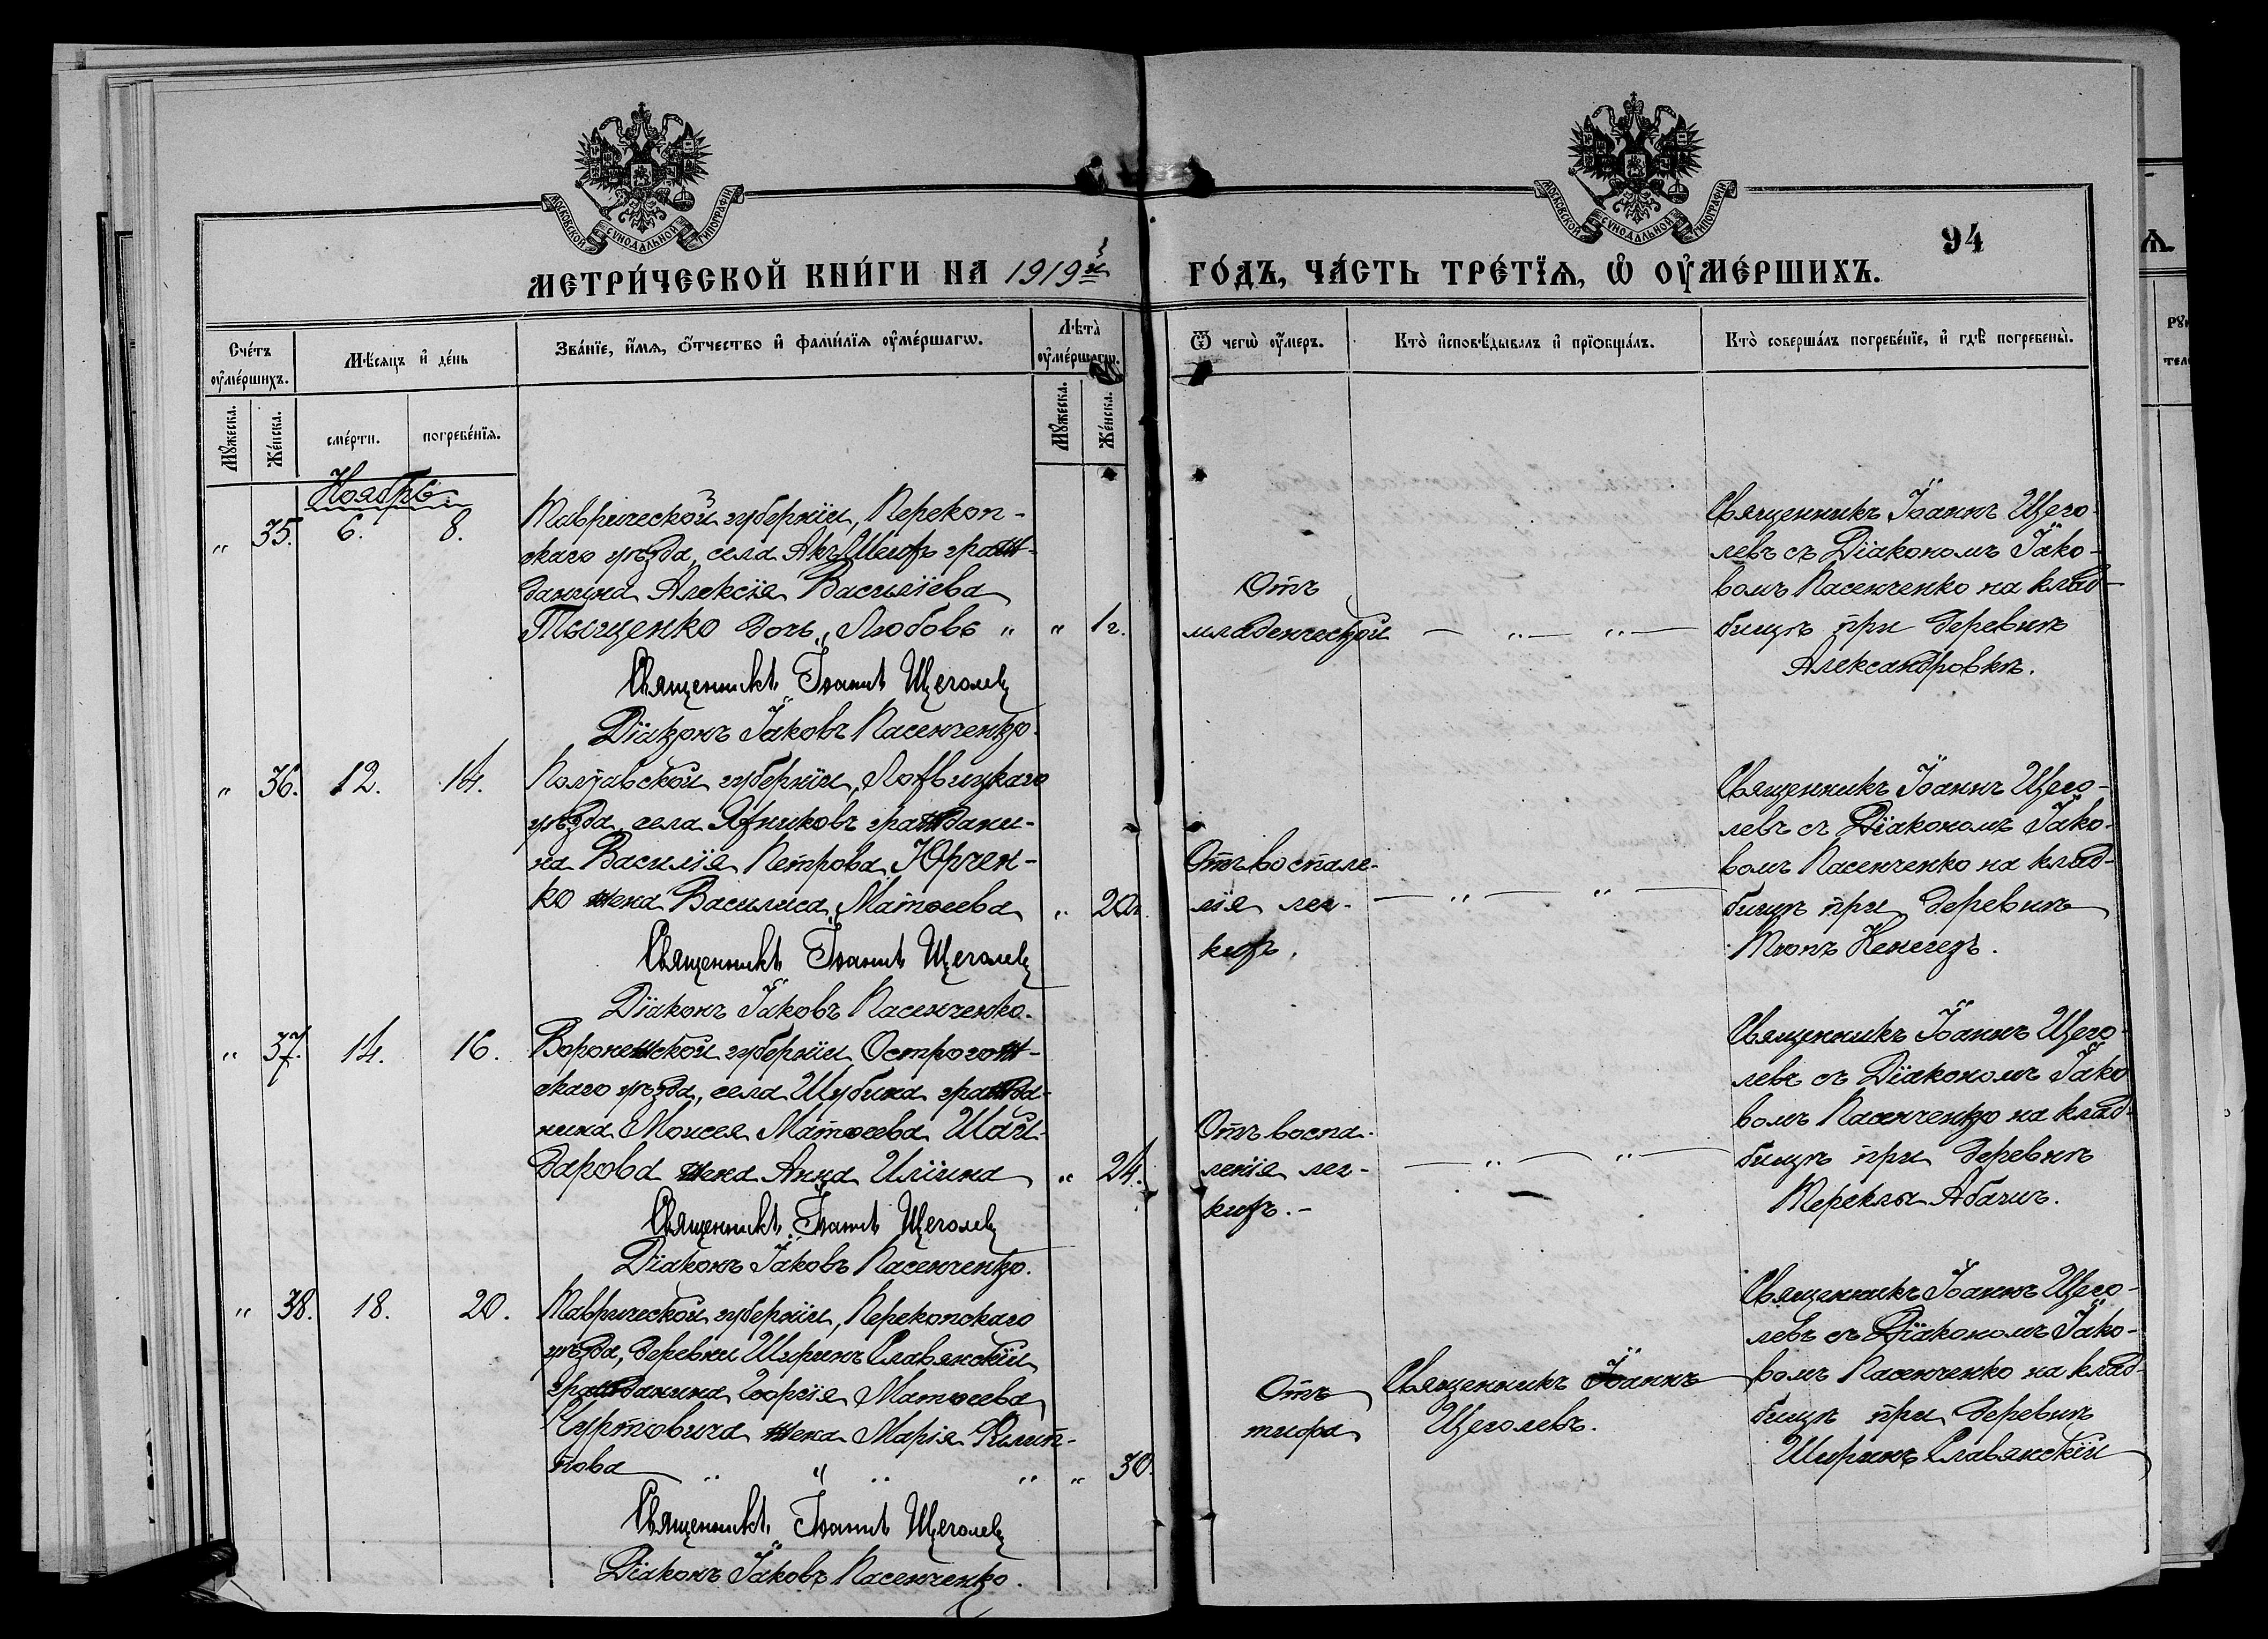 МОСКОВСКОЙ СУНОДАЛЬНОЙ ТИПОГРАФІИ
МОСКОВСКОЙ СУНОДАЛЬНОЙ ТИПОГРАФІИ
94
МЕТРИ́ЧЕСКОЙ КНИ́ГИ НА 1919й ГО́ДЪ, ЧА́СТЬ ТРЕ́ТЇѦ, Ѡ ОУ҆МЕ́РШИХЪ.
Сче́тъ оу҆ме́ршихъ.
Мѣ́сѧцъ и҆ де́нь
Зва́нїе, и҆́мѧ, ѻ҆́тчество и҆ фами́лїѧ оу҆ме́ршагѡ.
Лѣта̀ оу҆ме́ршагѡ.
Ѿ чегѡ̀ оу҆́меръ.
Кто̀ и҆сповѣ́дывалъ и҆ прїѡбща́лъ.
Кто̀ соверша́лъ погребе́нїе, и҆ гдѣ̀ погребены̀.
Мꙋ́жеска.
Же́нска.
сме́рти.
погребе́нїѧ.
Мꙋ́жеска.
Же́нска.
Ноябрь.
„ 35. 6. 8.
Таврической губерніи, Перекоп-
скаго уѣзда, села Акъ-Шехъ граж-
данина Алексія Васильева
Тыщенко дочь „Любовь „ „ 1 г.
Священникъ Іоаннъ Щеголевъ
Діаконъ Іаковъ Пасенченко.
Отъ
младенческой — „ — „ —
Священникъ Іоаннъ Щего-
левъ съ Діакономъ Іако-
вомъ Пасенченко на клад-
бищѣ при деревнѣ
Александровкѣ.
„ 36. 12. 14.
Полтавской губерніи, Лохвицкаго
уѣзда села Яхниковъ граждани-
на Василія Петрова Юрчен-
ко жена Василиса Матѳеева „ 20 г.
Священникъ Іоаннъ Щеголевъ
Діаконъ Іаковъ Пасенченко.
Отъ воспале-
нія лег-
кихъ. — „ — „ —
Священникъ Іоаннъ Щего-
левъ съ Діакономъ Іако-
вомъ Пасенченко на клад-
бищѣ при деревнѣ
Тюпъ Кенегезъ.
„ 37. 14. 16.
Воронежской губерніи Острогож-
скаго уѣзда, села Шубина гражда-
нина Моисея Матѳеева
дарова жена Анна Иліина „ 24.
Священникъ Іоаннъ Щеголевъ
Діаконъ Іаковъ Пасенченко.
Отъ воспа-
ленія лег-
кихъ. — — „ — „ —
Священникъ Іоаннъ Щего-
левъ съ Діакономъ Іако
вомъ Пасенченко на клад-
бищѣ при деревнѣ
Тереклы Абашъ.
„ 38. 18. 20.
Таврической губерніи, Перекопскаго
уѣзда, деревни Ширинъ Славянскій
гражданина Георгія Матѳеева
жена Марія Филип-
пова „ „ „ „ „ 30.
Священникъ Іоаннъ Щеголевъ
Діаконъ Іаковъ Пасенченко.
Отъ
тифа
Священникъ Іоаннъ
Щеголевъ.
Священникъ Іоаннъ Щего-
левъ съ Діакономъ Іако-
вомъ Пасенченко на клад-
бищѣ при деревнѣ
Ширинъ Славянскій